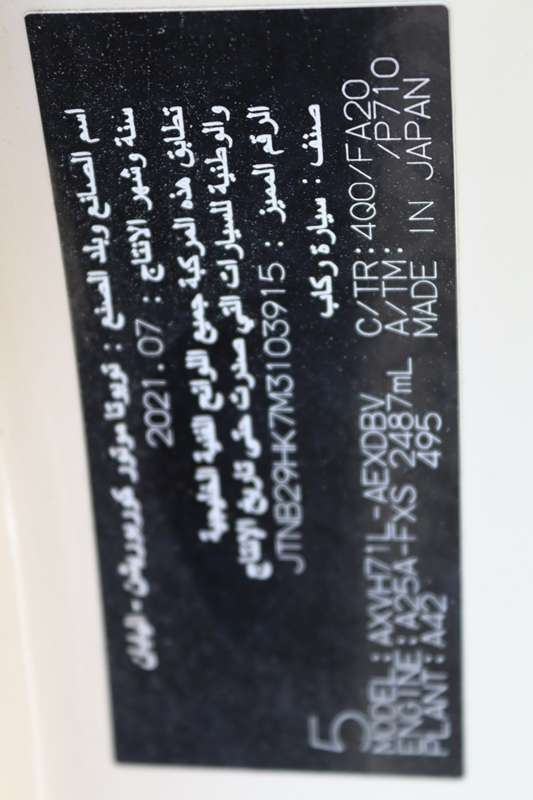 اسم الصانع وبلد الصنع : تويوتا موتور كوربوريشن - اليابان
سنة وشهر الانتاج : 2021.07
تطابق هذه المركبة جميع اللوائح الفنية الخليجية
والوطنية للسيارات التي صدرت حتى تاريخ الانتاج
الرقم المميز : JTNB29HK7M3103915
صنف : سيارة ركاب
5
MODEL:AXVH71L-AEXDBV C/TR:4Q0/FA20
ENGINE:A25A-FXS 2487mL A/TM: /P710
PLANT:A42 495 MADE IN JAPAN